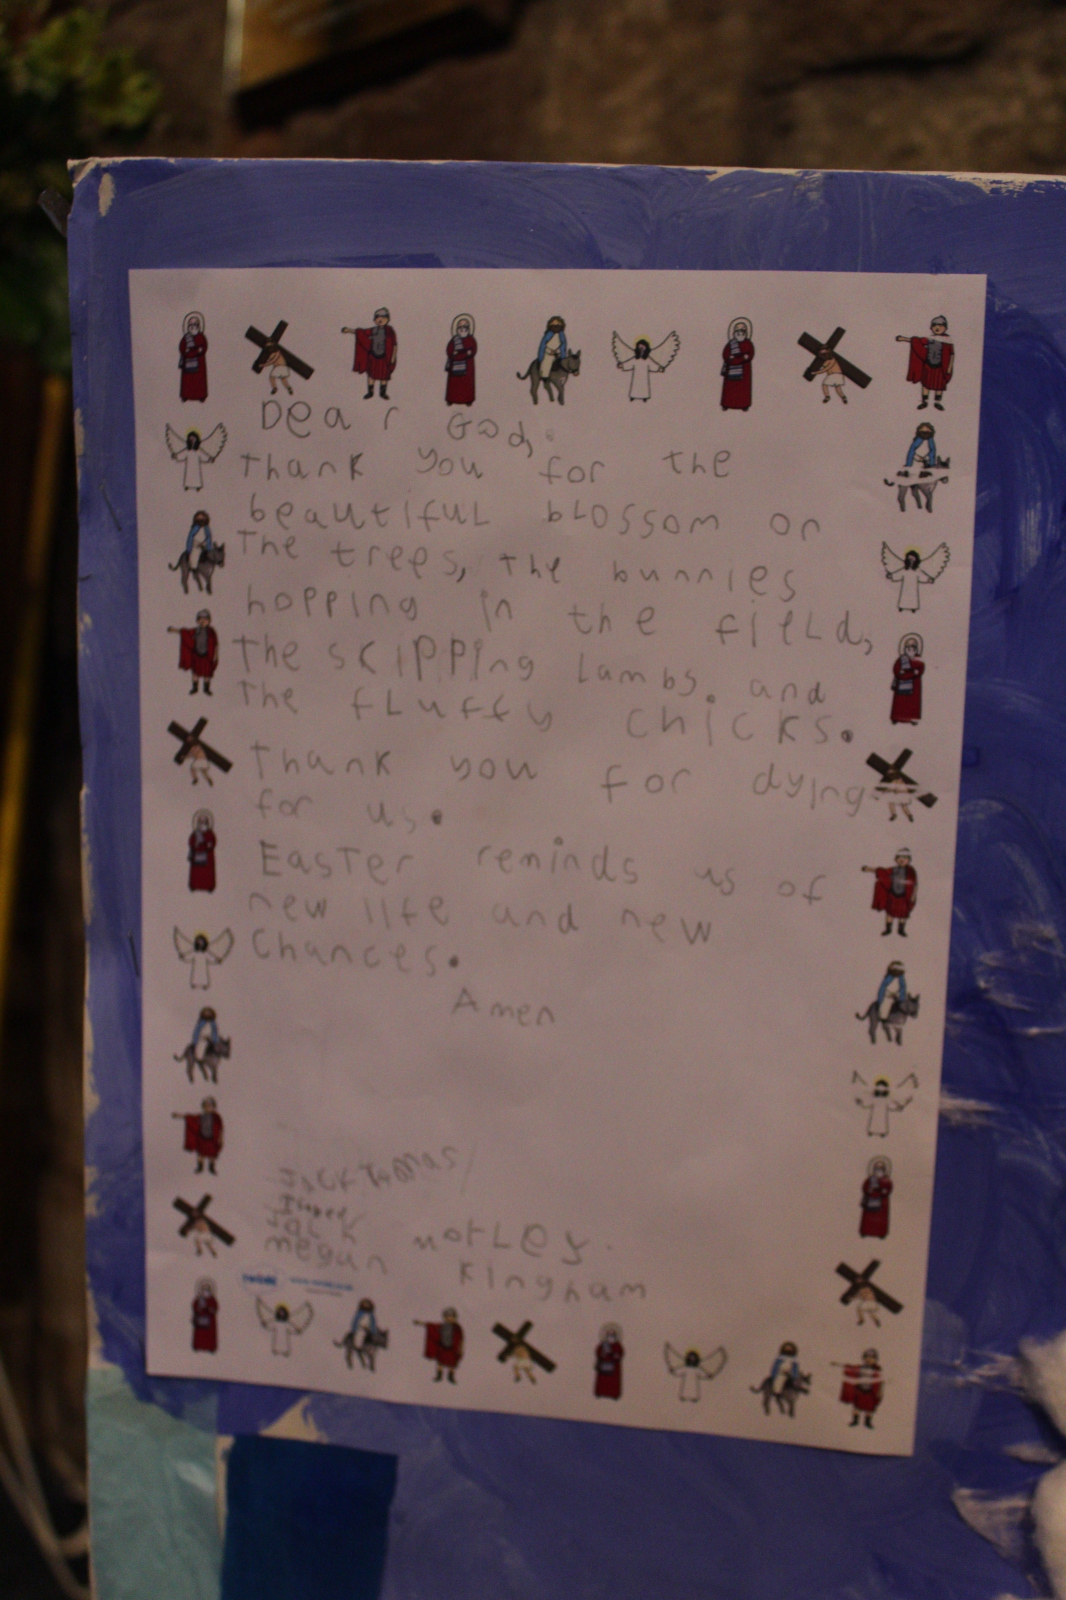 Dear God,
Thank you for the
beautiful blossom on
The trees, the bunnies
hopping in the field,
The skipping lambs. and
The fluffy chicks.
Thank you for dying
for us.
Easter reminds us of
new life and new
Chances.
Amen
Jack Thomas
Jack Morley
megan Kingham